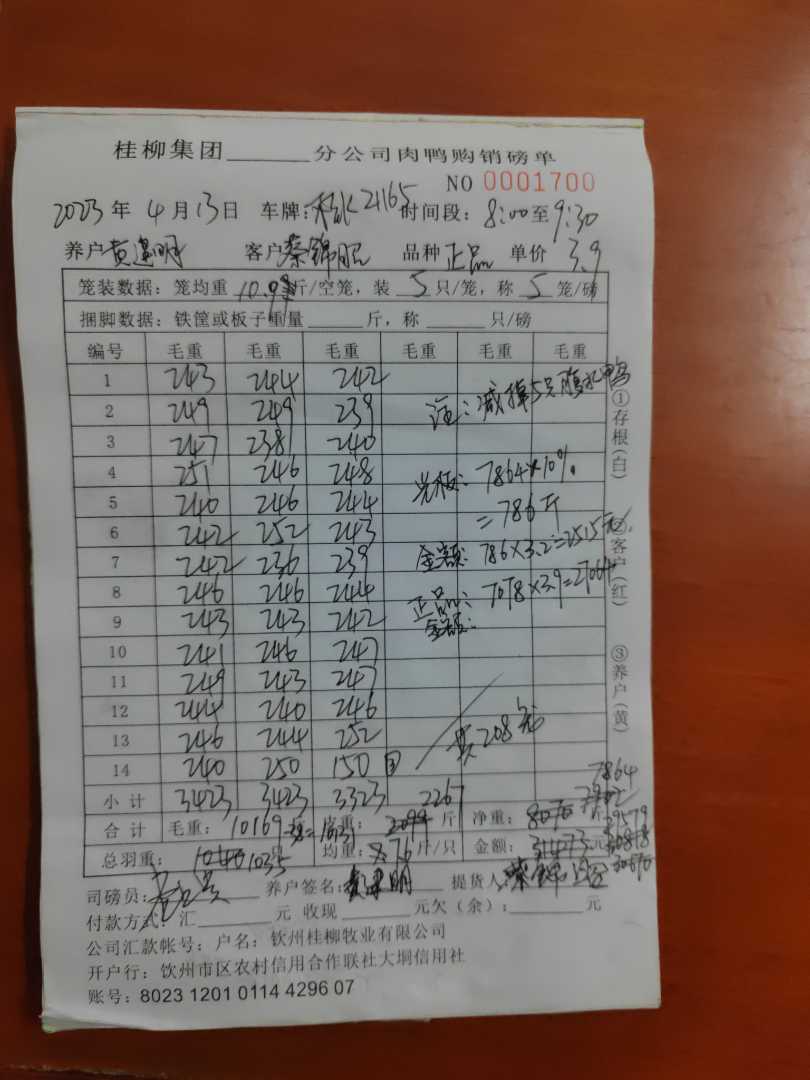 桂柳集团______分公司肉鸭购销磅单
NO 0001700
2023年4月13日 车牌: 21165 时间段: 8:00至9:30
养户 黄建明 客户 蔡锦 品种 正品 单价 3.9
笼装数据: 笼均重 10.9 斤/空笼, 装 5 只/笼, 称 5 笼/磅
捆脚数据: 铁筐或板子重量______斤, 称______只/磅
编号 毛重 毛重 毛重 毛重 毛重 毛重
1 243 244 242
2 249 249 239 注: 减掉5只腹水鸭
3 247 238 240
4 251 246 248 光板: 7864×10%
5 240 246 244 =786斤
6 242 252 243
7 242 236 239 金额: 786×3.2=2515元
8 246 246 244 正品 7078×3.9=27604
9 243 243 242 金额:
10 241 246 247
11 249 243 247
12 244 240 246
13 246 244 252 共208笼
14 240 250 150
7864
小计 3423 3423 3323 2267
合计 毛重: 10169 皮重: 2099 斤 净重: 8070 斤
总羽重: 1040 1035 只 均重: 7.6 斤/只 金额: 31473 元
司磅员: 养户签名: 黄建明 提货人: 蔡锦
付款方式: 汇______元 收现______元欠(余):______元
公司汇款帐号: 户名: 钦州桂柳牧业有限公司
开户行: 钦州市区农村信用合作联社大垌信用社
账号: 8023 1201 0114 4296 07
①存根(白) ②客户(红) ③养户(黄)